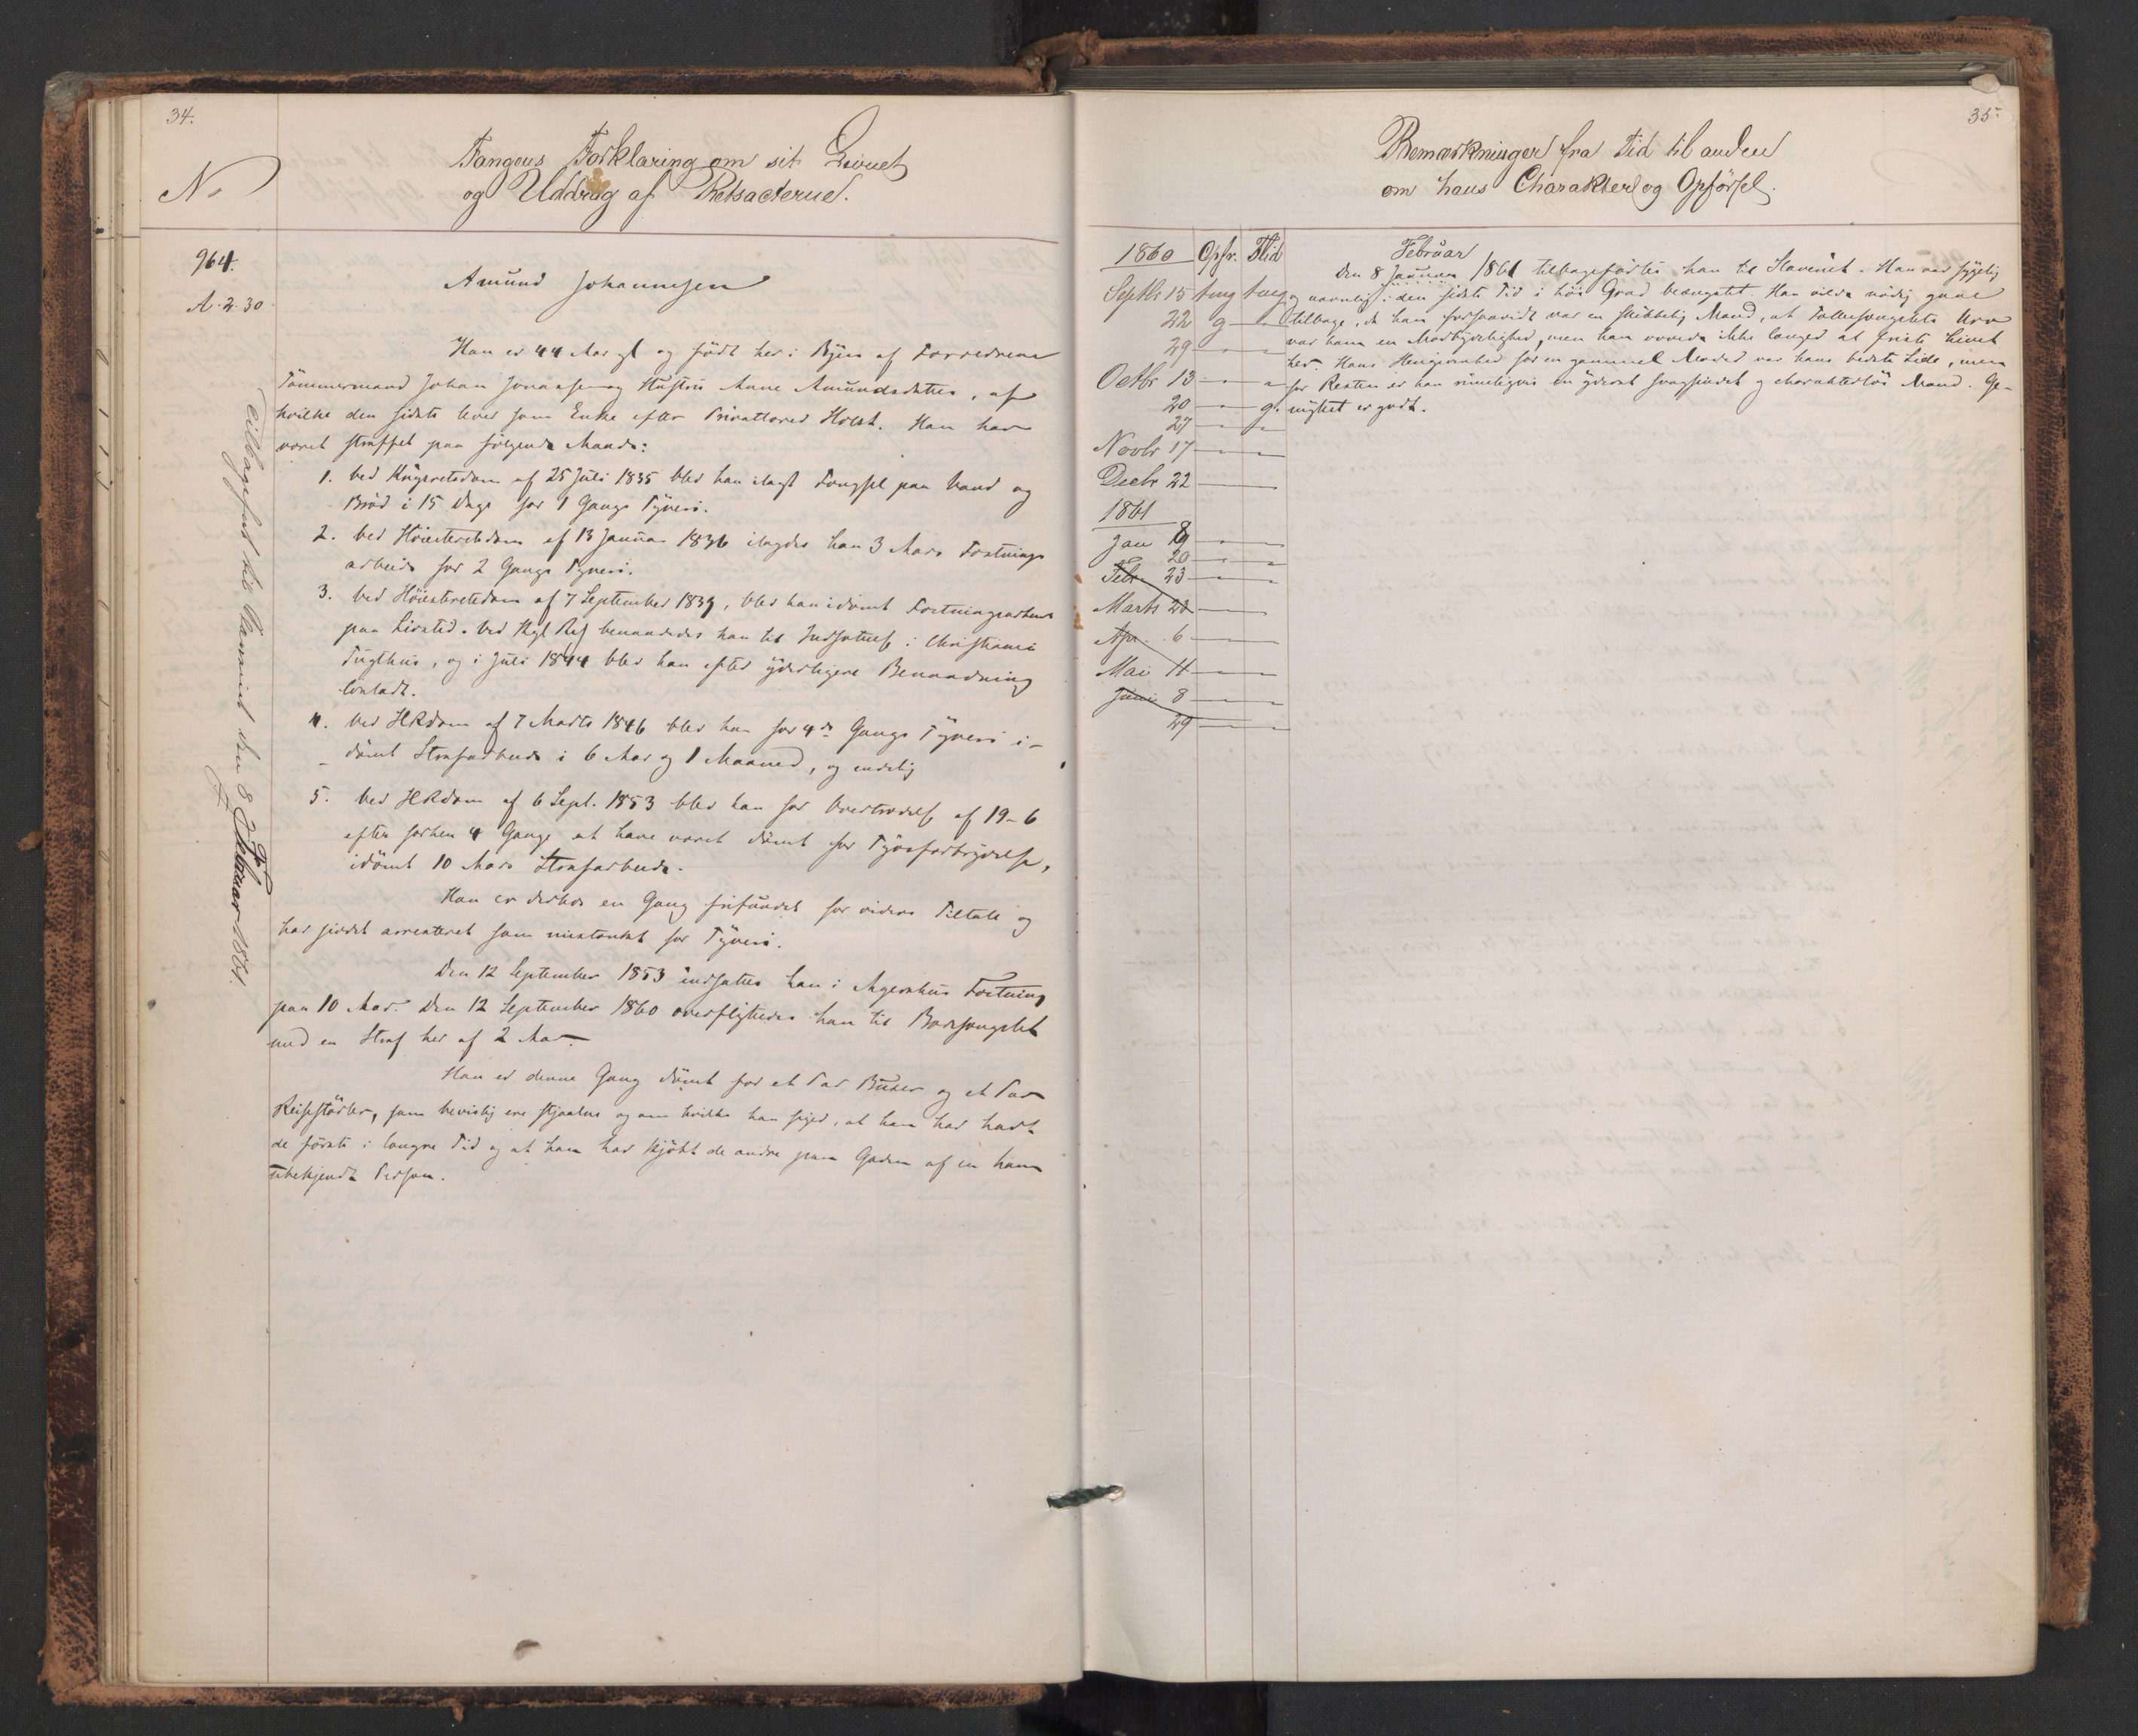 34.
No
Fangens Forklaring om sit Livnet
og Uddrag af Retsacterne.
964.
A. 2. 30
Amund Johannesen
Han er 44 Aar gl og født her i Byen af Forældrene
Tømmermand Johan Jonassen og Hustru Anne Amundsdatter, af
hvilke den sidste lever som Enke efter Holst. Han har
været straffet paa følgende Maade:
1. ved af 25 Juli 1835 blev han ilagt Fængsel paa Vand og
Brød i 15 Dage for 1 Gangs Tyveri.
2. ved Høiesteretsdom af 13 Januar 1836 ilagdes han 3 Aars Fæstnings
arbeide for 2 Gangs Tyveri.
3. ved Høiesteretsdom af 7 September 1839, blev han idømt Fæstningsarbeide
paa Livstid. Ved Kgl Res benaadedes han til Indsættelse i Christiania
Tugthus, og i Juli 1844 blev han efter yderligere Benaadning
løsladt.
4. ved HRdom af 7 Marts 1846 blev han for 4de Gangs Tyveri i-
dømt Strafarbeide i 6 Aar og 1 Maaned, og endelig
5. ved HRdom af 6 Sept. 1853 blev han for Overtrædelse af 19-6
efter forhen 4 Gange at have været dømt for Tyvsforbrydelse,
idømt 10 Aars Strafarbeide.
Han er derhos en Gang frifunden for videre Tiltale og
har siddet arresteret som mistænkt for Tyveri.
Den 12 September 1853 indsattes han i Agershus Fæstning
paa 10 Aar. Den 12 September 1860 overflyttedes han til Bodsfængslet
med en Straf her af 2 Aar.
Han er denne Gang dømt for et Par Buxer og et Par
Reisestøvler, som bevislig ere stjaalne og om hvilke han siger, at han har havt
de første i længre Tid og at han har kjøbt de andre paa Gaden af en ham
ubekjendt Person.
Tilbageført til Slaveriet den 8 Februar 1861.
35
Bemærkninger fra Tid til anden
om hans Charakter og Opførsel.
1860 Opfr. Flid
Septbr 15 tmg tmg
22 g
29
Octbr 13
20 g.
27
Novbr 17
Decbr 22
1861
Jan 19
8
20
Febr 23
Marts 20
Apr. 6
Mai 11
Juni 8
29
Februar
Den 8 Januar 1861 tilbageførtes han til Slaveriet. Han var sygelig
og navnlig i den sidste Tid i høi Grad beængstet. Han vilde nødig gaae
tilbage, da han forsaavidt var en skikkelig Mand, at
var ham en Modbydelighed, men han orkede ikke længer at friste Livet
her. Hans Hengivenhed for en gammel Moder var hans bedste Side, men
for Resten er han rimeligvis en yderst svagsindet og charakterløs Mand. Ge-
myttet er godt.